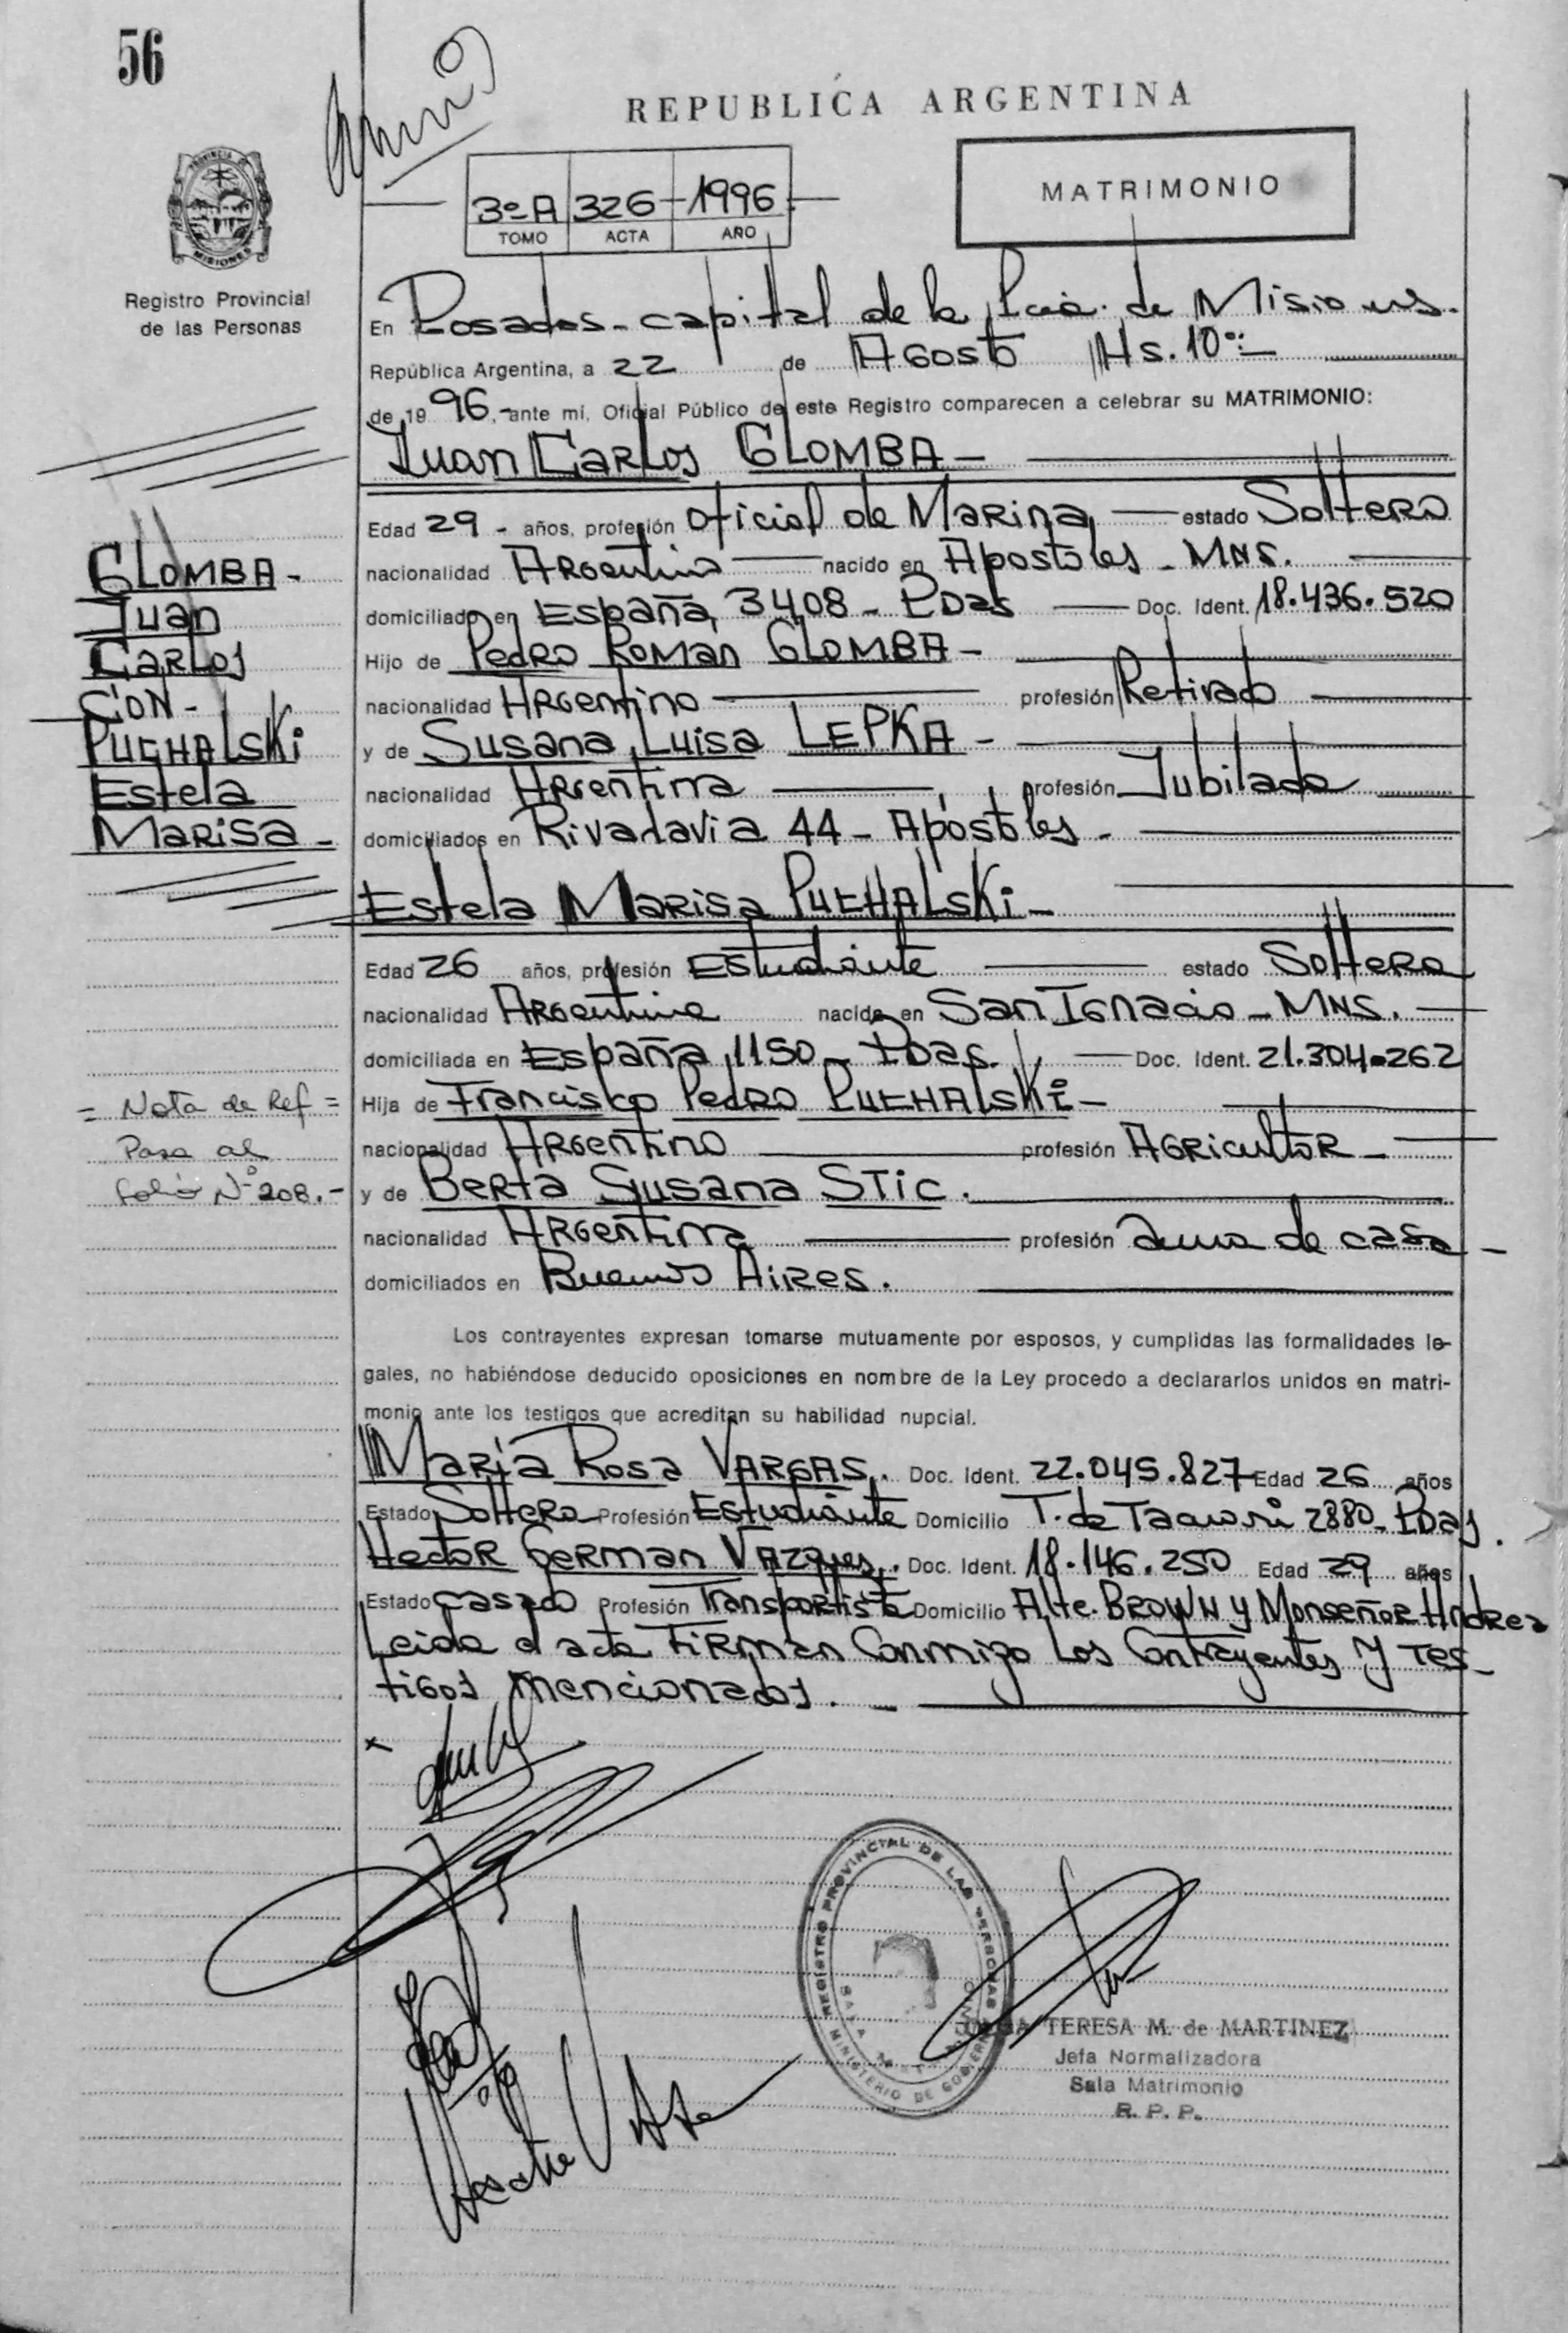 56
REPUBLICA ARGENTINA
3º A 326 1996
TOMO ACTA AÑO
MATRIMONIO
PROVINCIA DE
MISIONES
Registro Provincial
de las Personas
En Posadas - capital de la Pcia. de Misiones.
República Argentina, a 22 de Agosto Hs. 10
de 1996.- ante mí, Oficial Público de este Registro comparecen a celebrar su MATRIMONIO:
Juan Carlos GLOMBA -
Edad 29 - años, profesión Oficial de Marina estado Soltero
nacionalidad Argentino nacido en Apostoles - MNS.
domiciliado en España 3408 - Pdas Doc. Ident. 18.436.520
Hijo de Pedro Roman GLOMBA -
nacionalidad Argentino profesión Retirado
y de Susana Luisa LEPKA -
nacionalidad Argentina profesión Jubilada
domiciliados en Rivadavia 44 - Apóstoles -
GLOMBA -
Juan
Carlos
CON -
PUCHALSKi
Estela
Marisa -
Estela Marisa PUCHALSKi -
Edad 26 años, profesión Estudiante estado Soltera
nacionalidad Argentina nacida en San Ignacio - MNS.
domiciliada en España 1150 - Pdas. Doc. Ident. 21.304.262
Hija de Francisco Pedro PUCHALSKi -
nacionalidad Argentino profesión Agricultor -
y de Berta Susana STic.
nacionalidad Argentina profesión ama de casa -
domiciliados en Buenos Aires.
= Nota de Ref =
Pasa al
folio Nº 208.-
Los contrayentes expresan tomarse mutuamente por esposos, y cumplidas las formalidades le-
gales, no habiéndose deducido oposiciones en nombre de la Ley procedo a declararlos unidos en matri-
monio ante los testigos que acreditan su habilidad nupcial.
María Rosa VARGAS. Doc. Ident. 22.045.827 Edad 26 años
Estado Soltera Profesión Estudiante Domicilio T. de Tacuari 2880 - Pdas.
Hector German Vazques. Doc. Ident. 18.146.250 Edad 29 años
Estado casado Profesión Transportista Domicilio Alte. BROWN y Monseñor Andrea
Leida el acta Firman Conmigo Los Contrayentes y Tes-
tigos mencionados. -
REGISTRO PROVINCIAL DE LAS PERSONAS
MINISTERIO DE GOBIERNO
TERESA M. de MARTINEZ
Jefa Normalizadora
Sala Matrimonio
R. P. P.